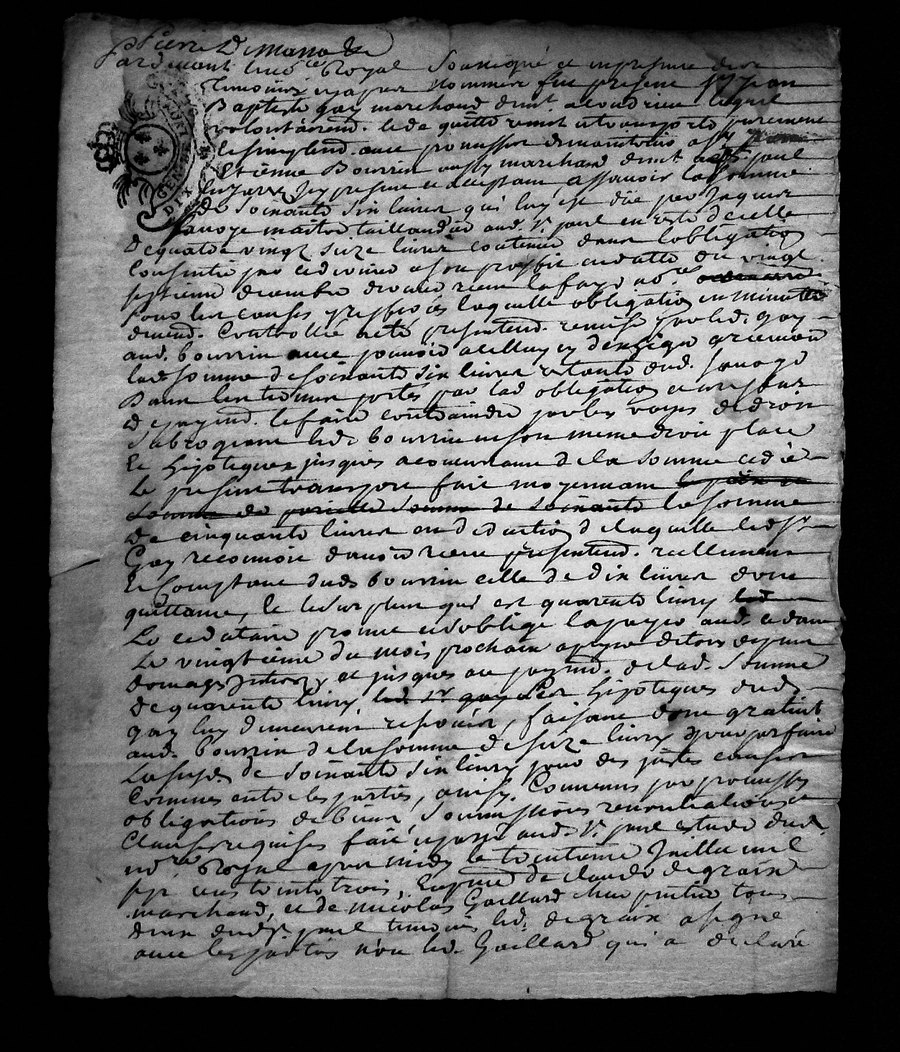 Pierre
Pardevant le no.re Royal Soussigné et en presence des
Temoins cy apres nommes fut present Jean
Baptiste Gay marchand dem.t a
volontairem.t cede quitte remet et transporte purement
et simplem.t avec promesse de maintenir a
Etienne Bourrin aussy marchand dem.t St. paul
cy present et acceptant assavoir la somme
de Soixante Six livres qui luy est due par Jaques
Sauoye maitre taillandier aud. St. paul en reste de celle
de quatre vingt seize livres contenue dans l'obligation
Consentie par ced. a son proffit en datte du vingt
septieme decembre dernier
pour les causes y laquelle obligation en minutte
duem.t Controllée a ete presentem.t remise par led. gay
aud. bourrin avec pouvoir
lad. somme de soixante six livres restante dud. Sauoye
Dans les termes portes par lad. obligation et
de payem.t le faire contraindre par les voyes de droit
Subrogeant led. bourrin en son meme droit place
Et hipoteques jusques a concurrance de la somme cedée
Le present transport fait moyennant
Somme de Soixante la somme
de cinquante livres en deduction de laquelle led. Sr
Gay reconnoit d'avoir receu presentem.t reellement
Et Comptant dud. bourrin celle de dix livres dont
quittance, et le surplus qui est quarente livres led
Le cedataire promet et s'oblige la payer aud. cedant
Le vingtieme du mois prochain a peyne de tous depens
domages Interets et jusques au payem.t de lad. Somme
de quarente livres, led. Sr gay les hipoteques dud.
gay luy demeurent reservés, faisant don gratuit
aud. bourrin de la somme de seize livres pour parfaire
La susd. de Soixante Six livres pour des justes causes
Connues entre les parties, ainsy Convenu par promesses
obligations de biens, Soumissions renonciations et
Clauses requises fait et passé aud. St. paul etude dud.
no.re Royal apres midy le trentieme Juillet mil
sept cens trente trois, En presence de claude degraix
marchand, et de nicolas Gaillard tous
deux dud. St. paul temoins led. degraix a signé
avec les parties non led. Gaillard qui a declaré